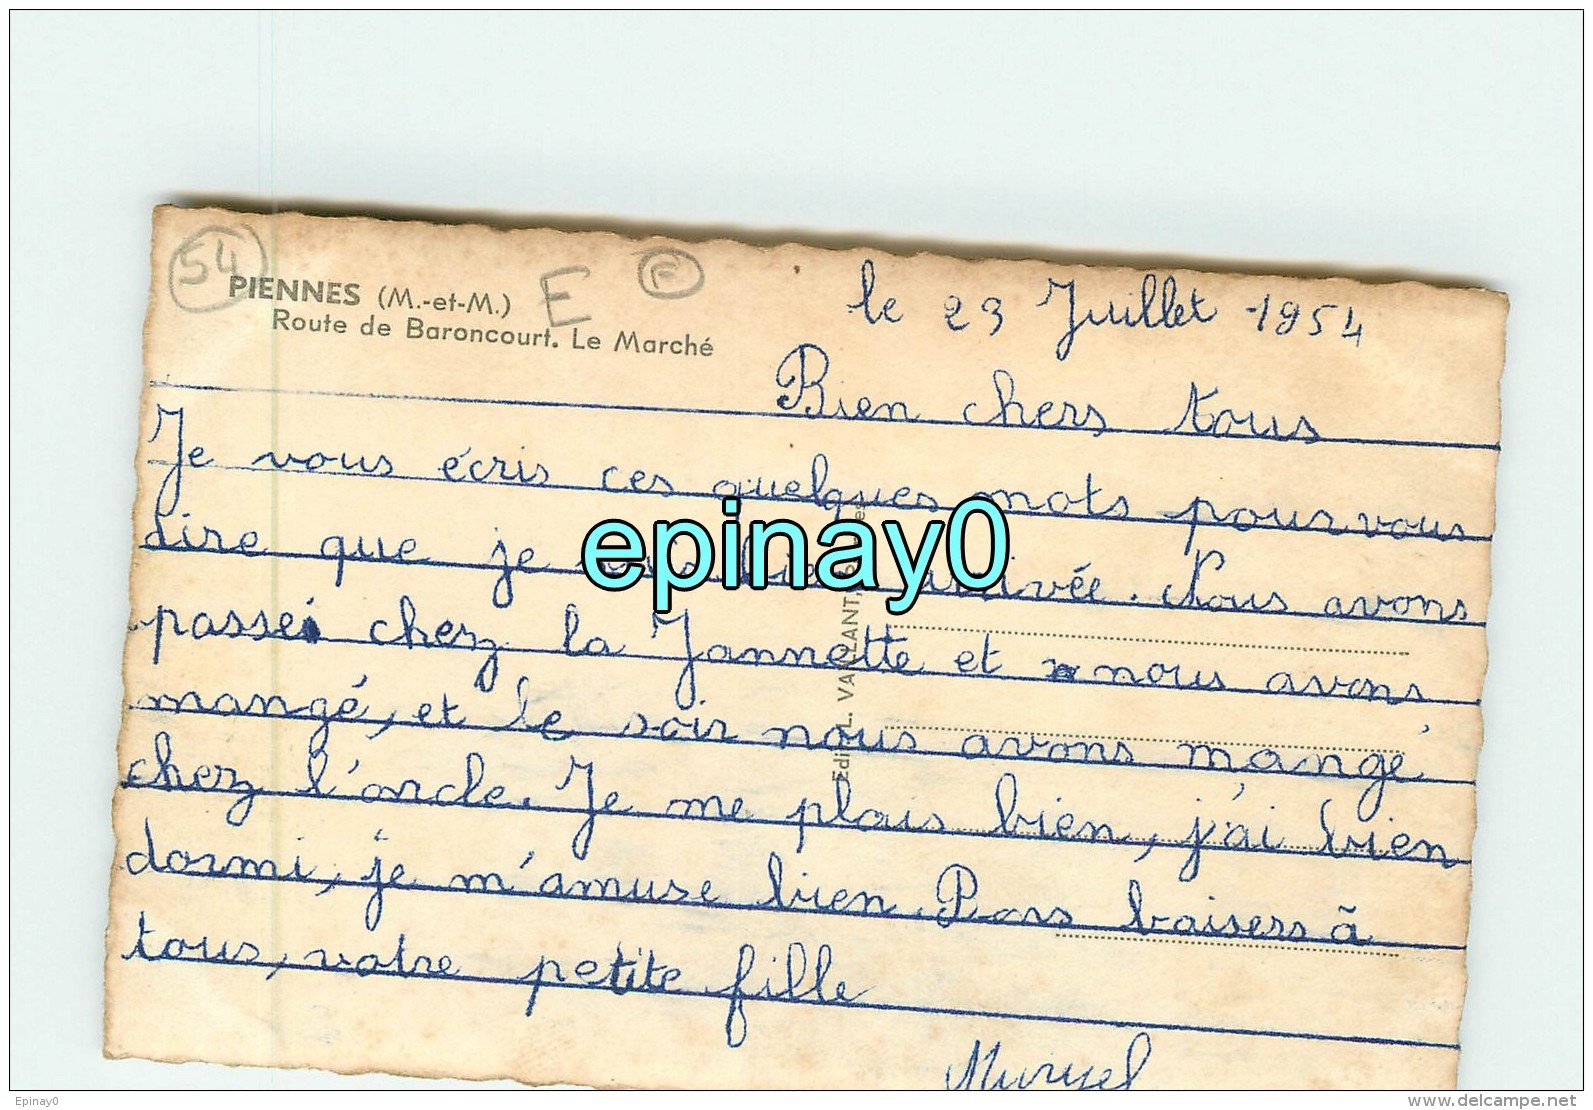 54
PIENNES (M.-et-M.)
E
F
Route de Baroncourt. Le Marché
le 23 Juillet 1954
Bien chers tous
Je vous écris ces quelques mots pour vous
dire que je bien arrivée. Nous avons
passé chez la Jannette et nous avons
mangé, et le soir nous avons mangé
chez l'oncle. Je me plais bien, j'ai bien
dormi, je m'amuse bien. Bons baisers à
tous, votre petite fille
epinay0
Edit. L. VAILLANT,
Epinay0
www.delcampe.net